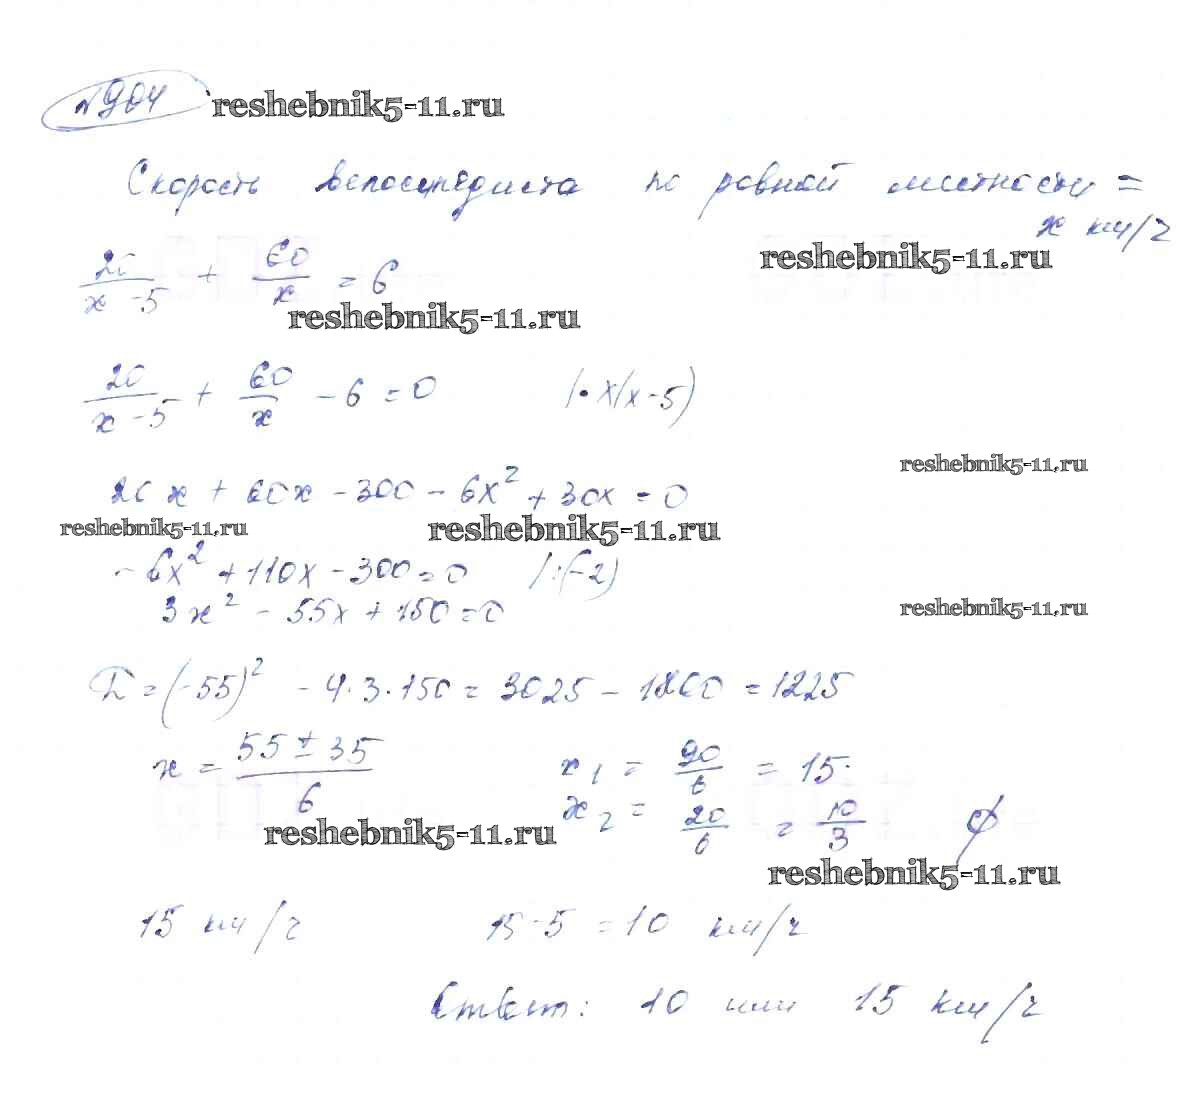 №904 reshebnik5-11.ru
Скорость велосипедиста по ровной местности =
x км/ч
reshebnik5-11.ru
20/(x-5) + 60/x = 6
reshebnik5-11.ru
20/(x-5) + 60/x - 6 = 0 |• x(x-5)
reshebnik5-11.ru
20x + 60x - 300 - 6x² + 30x = 0
reshebnik5-11.ru reshebnik5-11.ru
-6x² + 110x - 300 = 0 /:(-2)
3x² - 55x + 150 = 0
reshebnik5-11.ru
D = (-55)² - 4·3·150 = 3025 - 1800 = 1225
x = (55 ± 35)/6
x₁ = 90/6 = 15.
x₂ = 20/6 = 10/3 ∅
reshebnik5-11.ru
reshebnik5-11.ru
15 км/ч 15-5 = 10 км/ч
Ответ: 10 или 15 км/ч